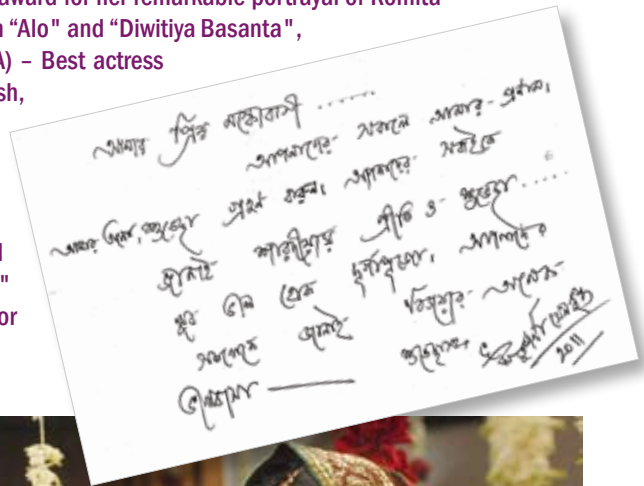 award for her remarkable portrayal of Romita
“Alo" and “Diwitiya Basanta",
A) – Best actress
sh,
or
আমার প্রিয় মস্কোবাসী ......
আপনাদের সবাইকে আমার প্রণাম,
আমার শুভেচ্ছা গ্রহণ করুন। আপনাদের সবাইকে
জানাই শারদীয়ার প্রীতি ও শুভেচ্ছা.....
খুব ভাল হোক দুর্গাপুজো, আপনাদের
সবাইকে জানাই বিজয়ার অনেক
ভালবাসা —— শুভেচ্ছান্তে
2011